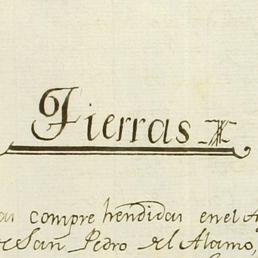 Tierras
compre hendidas en el
San Pedro del Alamo,